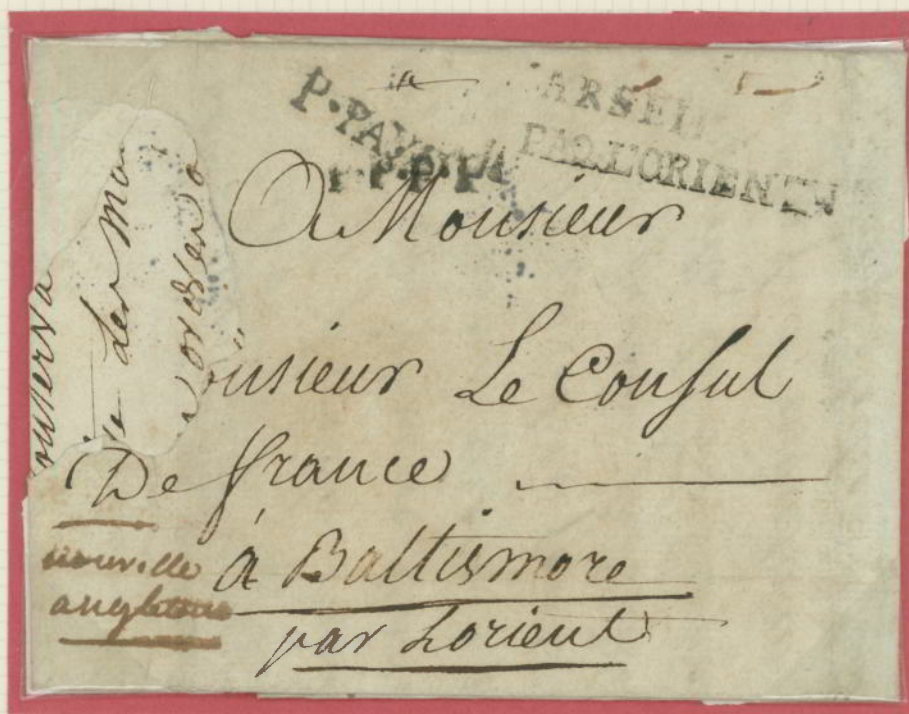 P.PAY
P.P.P.P.
ARSEI
PAQ.L'ORIENT
A Monsieur
onsieur Le Consul
De france
à Baltismore
par Lorient
nouvelle
angleterre